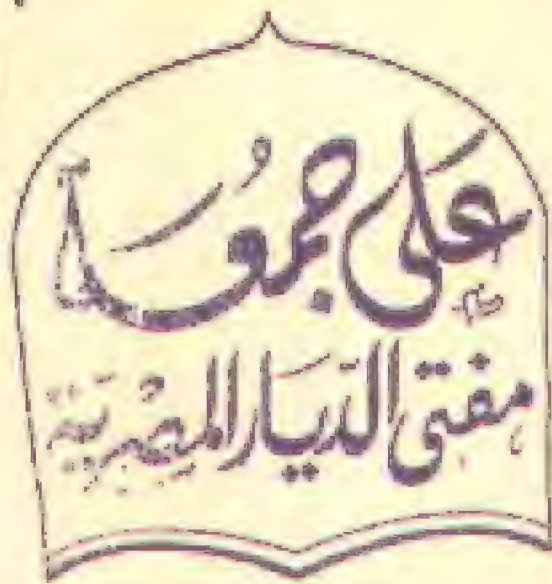 على جمعة
مفتى الديار المصرية